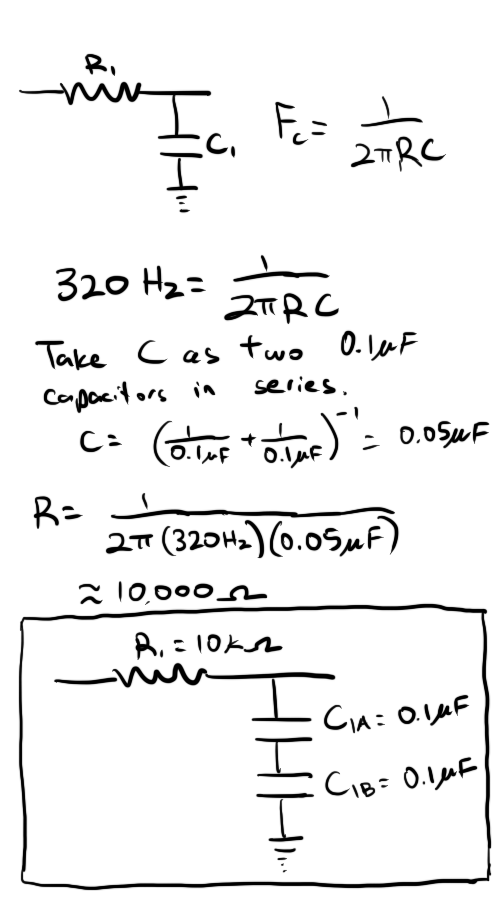 R₁
C₁
F_c = 1/(2πRC)
320 Hz = 1/(2πRC)
Take C as two 0.1µF
capacitors in series.
C = (1/0.1µF + 1/0.1µF)⁻¹ = 0.05µF
R = 1/(2π(320Hz)(0.05µF))
≈ 10,000 Ω
R₁ = 10kΩ
C₁A = 0.1µF
C₁B = 0.1µF